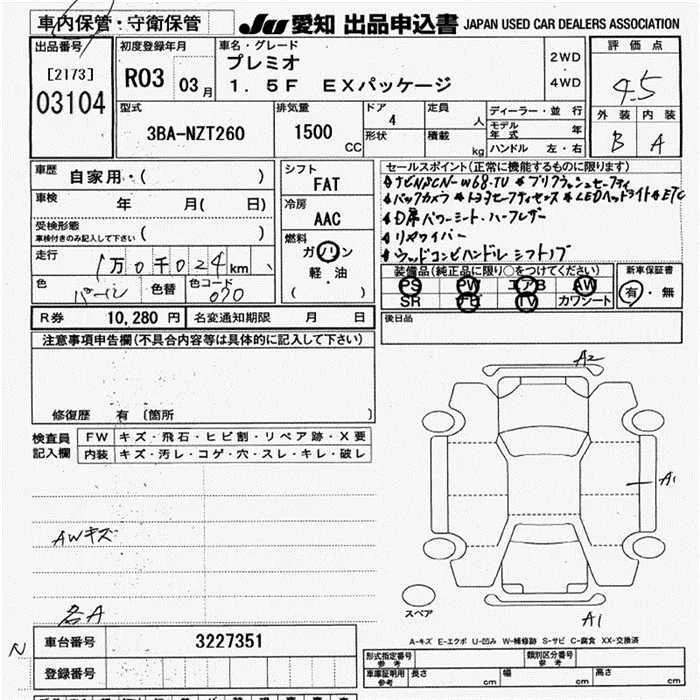 車内保管・守衛保管 JU 愛知 出品申込書 JAPAN USED CAR DEALERS ASSOCIATION
出品番号 初度登録年月 車名・グレード 評価点
[2173] R03 03月 プレミオ 2WD・4WD 4.5
03104 1.5F EXパッケージ
外装 内装
B A
型式 排気量 ドア 定員 ディーラー・並行
3BA-NZT260 1500 CC 4 人 モデル年式 年
形状 積載 kg ハンドル 左・右
車歴 自家用・( ) シフト FAT セールスポイント(正常に機能するものに限ります)
車検 年 月( 日) 冷房 AAC
ナビNSCN-W68.TV
*バックカメラ *LEDヘッドライト*ETC
*リヤワイパー
受検形態 ( )
車検付きのみ記入して下さい
走行 1万0千024km 燃料 ガソリン
軽・油
( )
装備品(純正品に限り○をつけてください) 新車保証書
PS PW エアB AW 有・無
SR ナビ TV カワシート
色 パール 色替 色コード 070
R券 10,280円 名変通知期限 月 日 後日品
注意事項申告欄(不具合内容等は具体的に記入して下さい)
修復歴 有 〔箇所 〕
検査員記入欄 FW キズ・飛石・ヒビ割・リペア跡・X要
内装 キズ・汚レ・コゲ・穴・スレ・キレ・破レ
A2
A1
AWキズ
スペア
各A
A1
A-キズ E-エクボ U-凹み W-補修跡 S-サビ C-腐食 XX-交換済
N 車台番号 3227351
登録番号
形式指定番号 参考 類別区分番号 参考
車庫証明用 参考 長さ cm 幅 cm 高さ cm